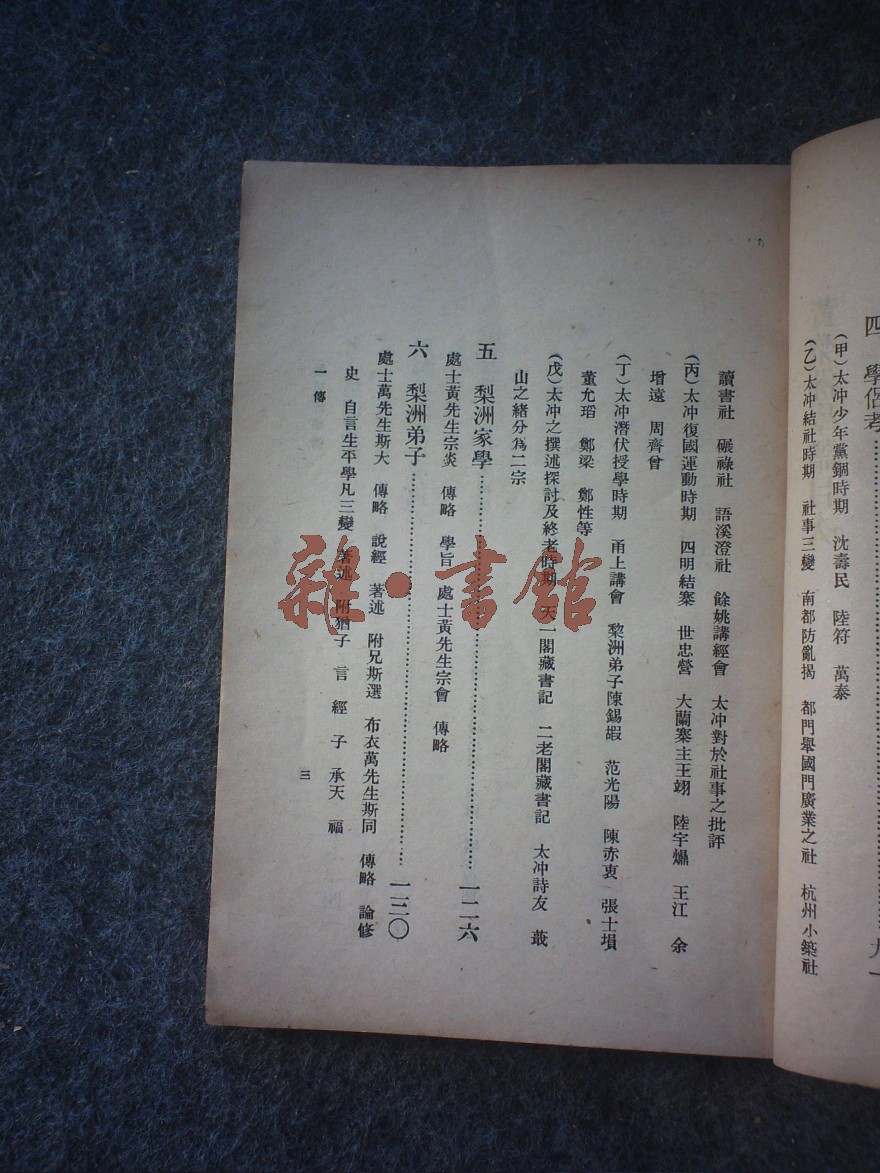 四 學侶考……九一
（甲）太冲少年黨錮時期 沈壽民 陸符 萬泰
（乙）太冲結社時期 社事三變 南都防亂揭 都門舉國門廣業之社 杭州小築社
讀書社 碾祿社 語溪澄社 餘姚講經會 太冲對於社事之批評
（丙）太冲復國運動時期 四明結寨 世忠營 大蘭寨主王翊 陸宇㷿 王江 余
增遠 周齊曾
（丁）太冲潛伏授學時期 甬上講會 黎洲弟子陳錫嘏 范光陽 陳赤衷 張士塤
董允瑫 鄭梁 鄭性等
（戊）太冲之撰述探討及終老時期 天一閣藏書記 二老閣藏書記 太冲詩友 蕺
山之緒分為二宗
五 梨洲家學……一二六
處士黃先生宗炎 傳略 學旨 處士黃先生宗會 傳略
六 梨洲弟子……一三〇
處士萬先生斯大 傳略 說經 著述 附兄斯選 布衣萬先生斯同 傳略 論修
史 自言生平學凡三變 著述 附猶子 言 經 子 承天 福
一傳
三
雜·書館